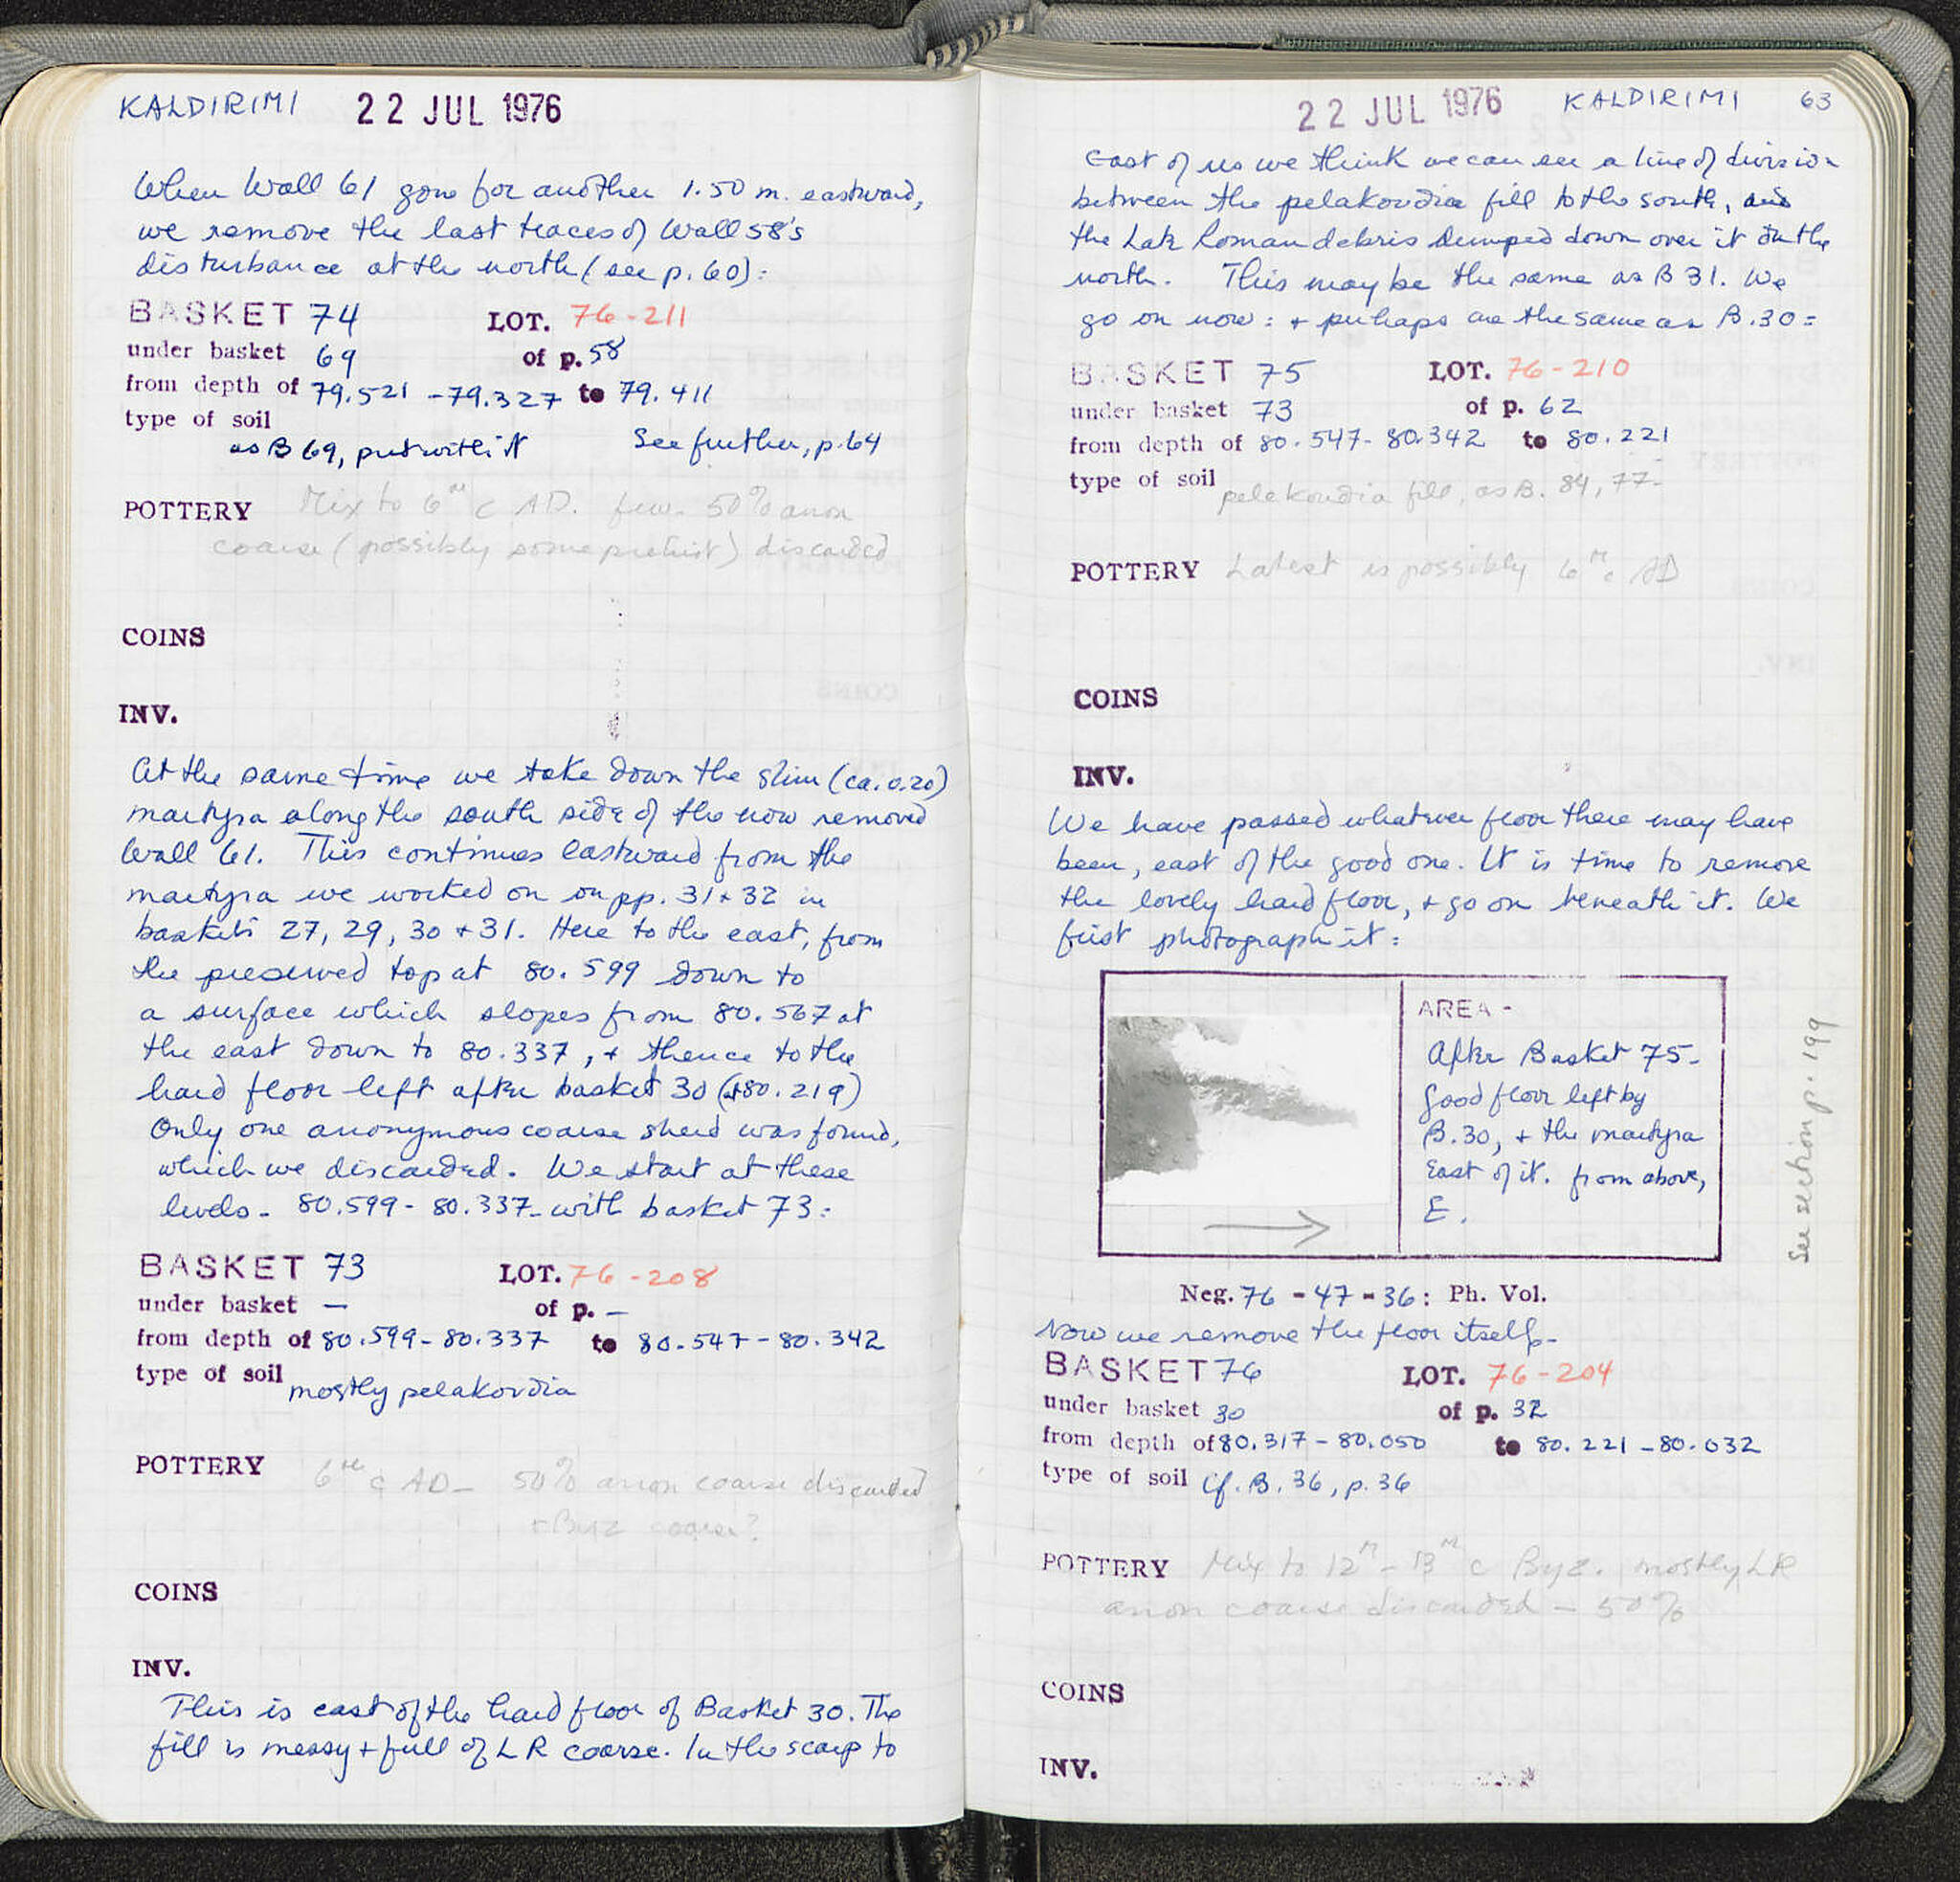 KALDIRIMI 22 JUL 1976
When Wall 61 gone for another 1.50 m. eastward,
we remove the last traces of Wall 58's
disturbance at the north (see p. 60):
BASKET 74 LOT. 76-211
under basket 69 of p. 58
from depth of 79.521 - 79.327 to 79.411
type of soil
as B 69, put with it See further, p. 64
POTTERY Mix to 6th c AD. few. 50% anon
coarse (possibly some prehist) discarded
COINS
INV.
At the same time we take down the slim (ca. 0.20)
martyra along the south side of the now removed
Wall 61. This continues eastward from the
martyra we worked on on pp. 31 + 32 in
baskets 27, 29, 30 + 31. Here to the east, from
the preserved top at 80.599 down to
a surface which slopes from 80.567 at
the east down to 80.337, + thence to the
hard floor left after basket 30 (at 80.219)
Only one anonymous coarse sherd was found,
which we discarded. We start at these
levels - 80.599 - 80.337 - with basket 73:
BASKET 73 LOT. 76-208
under basket — of p. —
from depth of 80.599 - 80.337 to 80.547 - 80.342
type of soil mostly pelakovdia
POTTERY 6th c AD - 50% anon coarse discarded
+ Byz coarse?
COINS
INV.
This is east of the hard floor of Basket 30. The
fill is messy + full of LR coarse. In the scarp to
22 JUL 1976 KALDIRIMI 63
East of us we think we can see a line of division
between the pelakovdia fill to the south, and
the Late Roman debris dumped down over it on the
north. This may be the same as B 31. We
go on now: + perhaps are the same as B. 30:
BASKET 75 LOT. 76-210
under basket 73 of p. 62
from depth of 80.547 - 80.342 to 80.221
type of soil pelakovdia fill, as B. 84, 77-
POTTERY Latest is possibly 6th c AD
COINS
INV.
We have passed whatever floor there may have
been, east of the good one. It is time to remove
the lovely hard floor, + go on beneath it. We
first photograph it:
AREA -
After Basket 75-
Good floor left by
B. 30, + the martyra
East of it. from above,
E.
See section p. 199
Neg. 76 - 47 - 36: Ph. Vol.
Now we remove the floor itself-
BASKET 76 LOT. 76-204
under basket 30 of p. 32
from depth of 80.317 - 80.050 to 80.221 - 80.032
type of soil cf. B. 36, p. 36
POTTERY Mix to 12th - 13th c Byz. mostly LR
anon coarse discarded - 50%
COINS
INV.